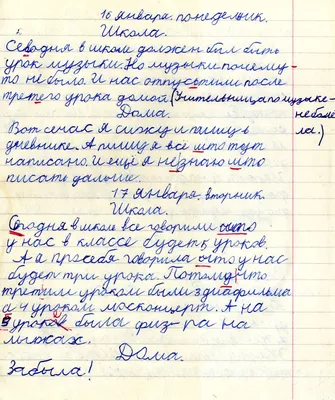 16 января понедельник.
Школа.
Севодня в школе должен был быть
урок музыки. Но музыки почему-
то не было. И нас отпустили после
третего урока домой (Учительница по музыке-
Дома. не была
Вот сечас я сижу и пишу в
дневнике. А пишу я всё што тут
написано. И ещё я незнаю што
писать дальше.
17 января, вторник.
Школа.
Сегодня в школе все говорили што
у нас в классе будет 5 уроков.
А я просебя говорила што у нас
будет три урока. Потому что
третим уроком были 3 диафильма
а 4 уроком москонцерт. А на
5 уроке была физ-ра на
лыжах.
Дома.
Забыла!